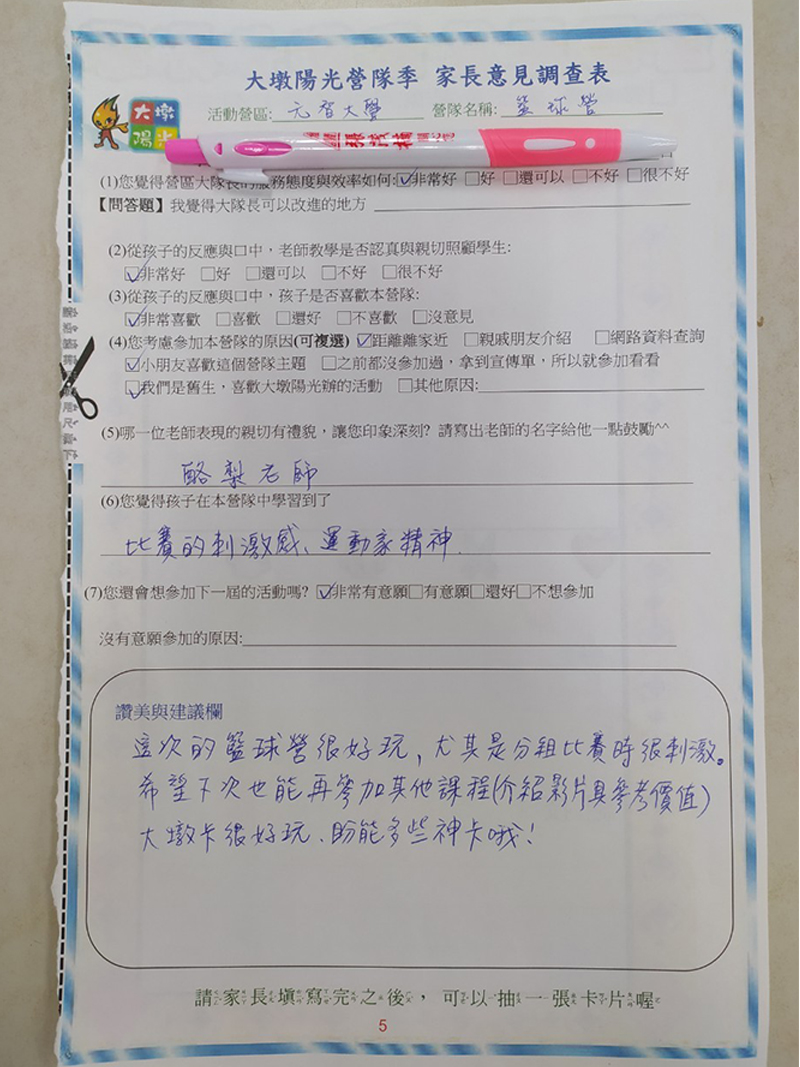 大墩陽光營隊季 家長意見調查表
大墩
陽光
活動營區: 元智大學 營隊名稱: 籃球營
(1)您覺得營區大隊長的服務態度與效率如何:☑非常好 □好 □還可以 □不好 □很不好
【問答題】我覺得大隊長可以改進的地方
(2)從孩子的反應與口中，老師教學是否認真與親切照顧學生:
☑非常好 □好 □還可以 □不好 □很不好
(3)從孩子的反應與口中，孩子是否喜歡本營隊:
☑非常喜歡 □喜歡 □還好 □不喜歡 □沒意見
(4)您考慮參加本營隊的原因(可複選) ☑距離離家近 □親戚朋友介紹 □網路資料查詢
☑小朋友喜歡這個營隊主題 □之前都沒參加過，拿到宣傳單，所以就參加看看
☑我們是舊生，喜歡大墩陽光辦的活動 □其他原因:
(5)哪一位老師表現的親切有禮貌，讓您印象深刻? 請寫出老師的名字給他一點鼓勵^^
酪梨老師
(6)您覺得孩子在本營隊中學習到了
比賽的刺激感、運動家精神.
(7)您還會想參加下一屆的活動嗎? ☑非常有意願□有意願□還好□不想參加
沒有意願參加的原因:
讚美與建議欄
這次的籃球營很好玩，尤其是分組比賽時很刺激。
希望下次也能再參加其他課程(介紹影片具參考價值)
大墩卡很好玩、盼能多些神卡哦!
請家長填寫完之後，可以抽一張卡片喔
5